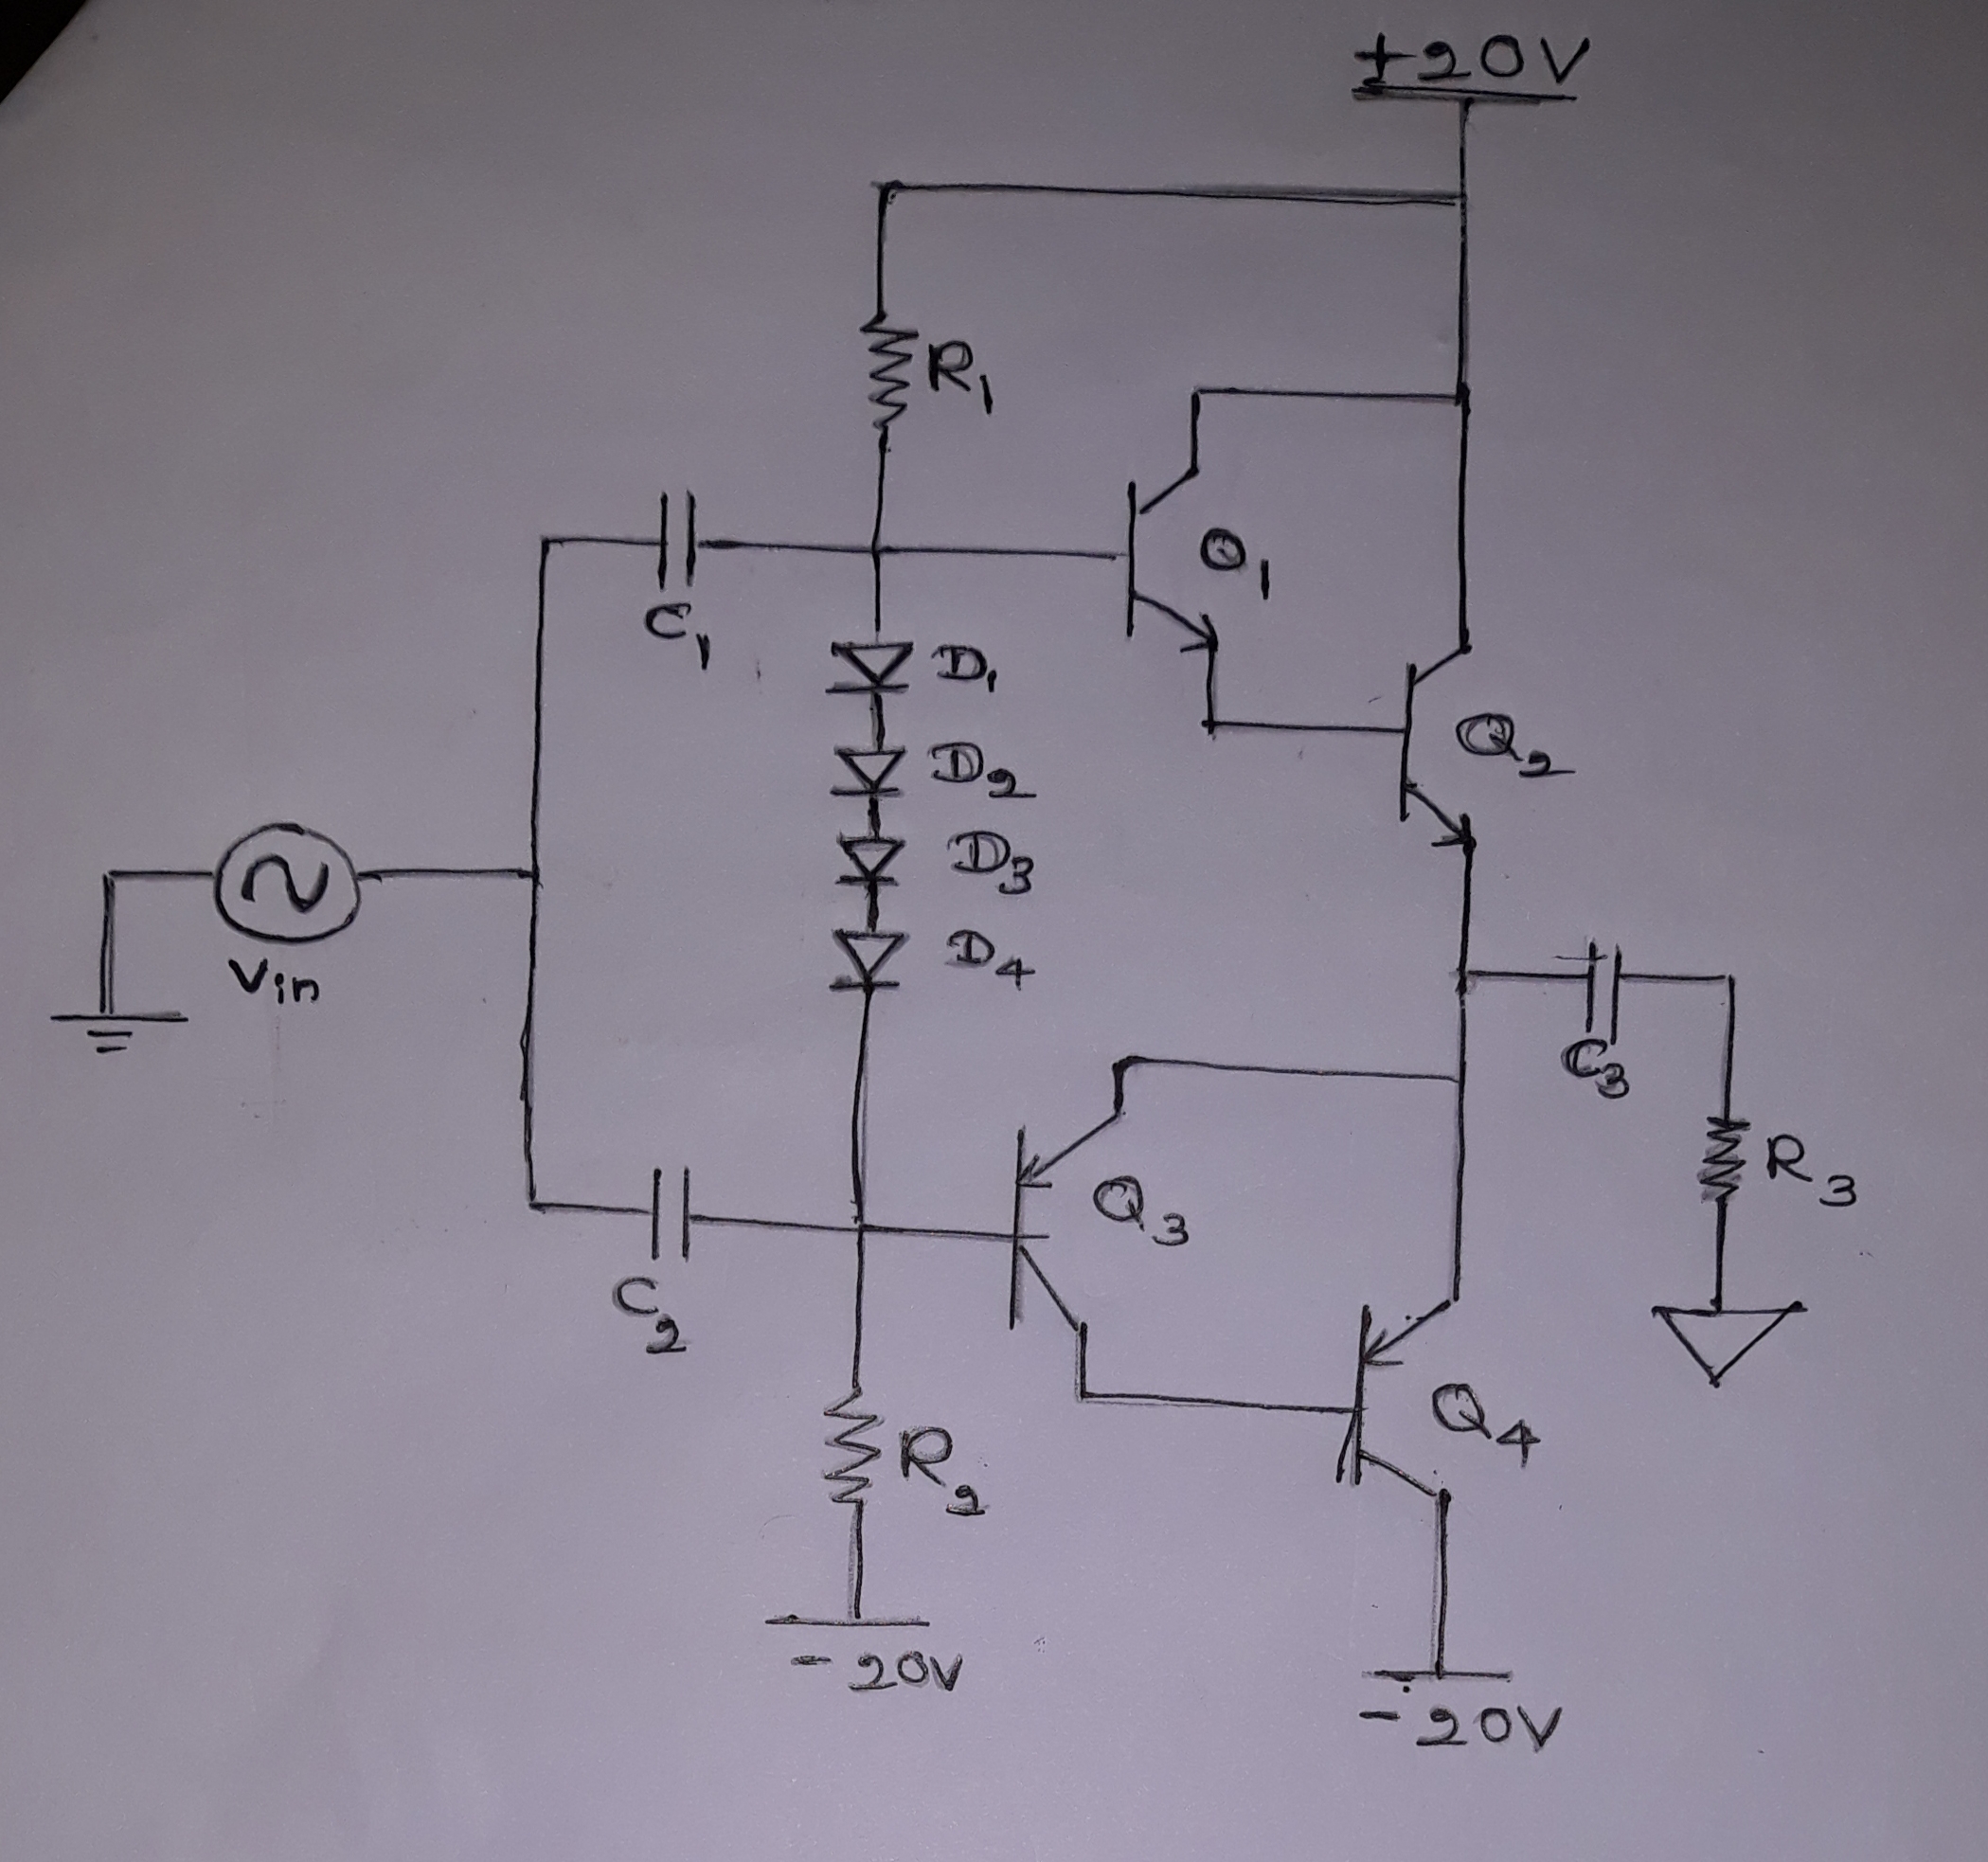 +20V
R1
C1
Q1
D1
D2
Q2
D3
D4
Vin
C3
R3
Q3
C2
Q4
R2
-20V
-20V